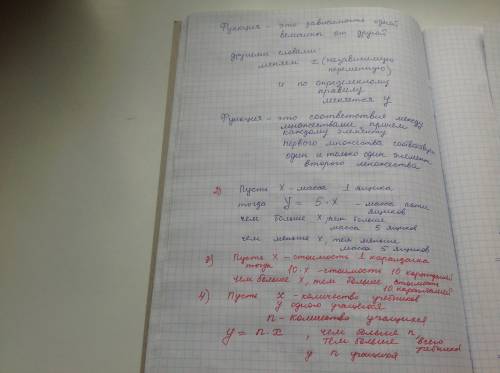 Функция - это зависимость одной
величины от другой
другими словами:
меняем x (независимую
переменную)
и по определенному
правилу
меняется y
Функция - это соответствие между
множествами причем
каждому элементу
первого множества соответствует
один и только один элемент
второго множества
2) Пусть x - масса 1 ящика
тогда y = 5 · x - масса пяти
ящиков
чем больше x, тем больше
масса 5 ящиков
чем меньше x, тем меньше
масса 5 ящиков
3) Пусть x - стоимость 1 карандаша
тогда 10 · x - стоимость 10 карандашей
чем больше x, тем больше стоимость
10 карандашей
4) Пусть x - количество учебников
у одного учащегося
n - количество учащихся
y = n · x, чем больше n,
тем больше всего
учебников
у n учащихся